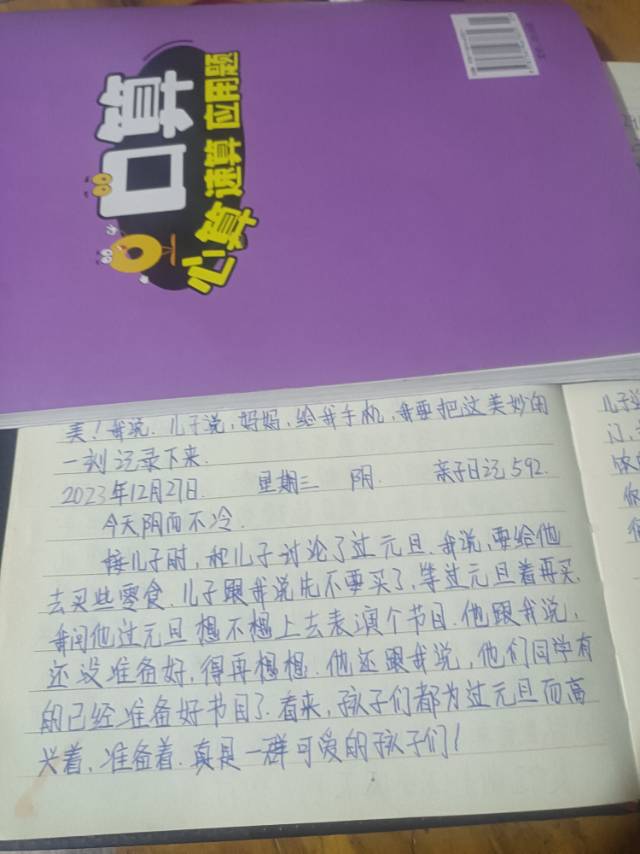 口算
心算 速算 应用题
美！我说.儿子说,妈妈,给我手机,我要把这美妙的
一刻记录下来.
2023年12月27日. 星期三 阴. 亲子日记592.
今天阴而不冷.
接儿子时,和儿子讨论了过元旦.我说,要给他
去买些零食.儿子跟我说先不要买了,等过元旦着再买.
我问他过元旦想不想上去表演个节目.他跟我说,
还没准备好,得再想想.他还跟我说,他们同学有
的已经准备好节目了.看来,孩子们都为过元旦而高
兴着,准备着.真是一群可爱的孩子们！
儿子说